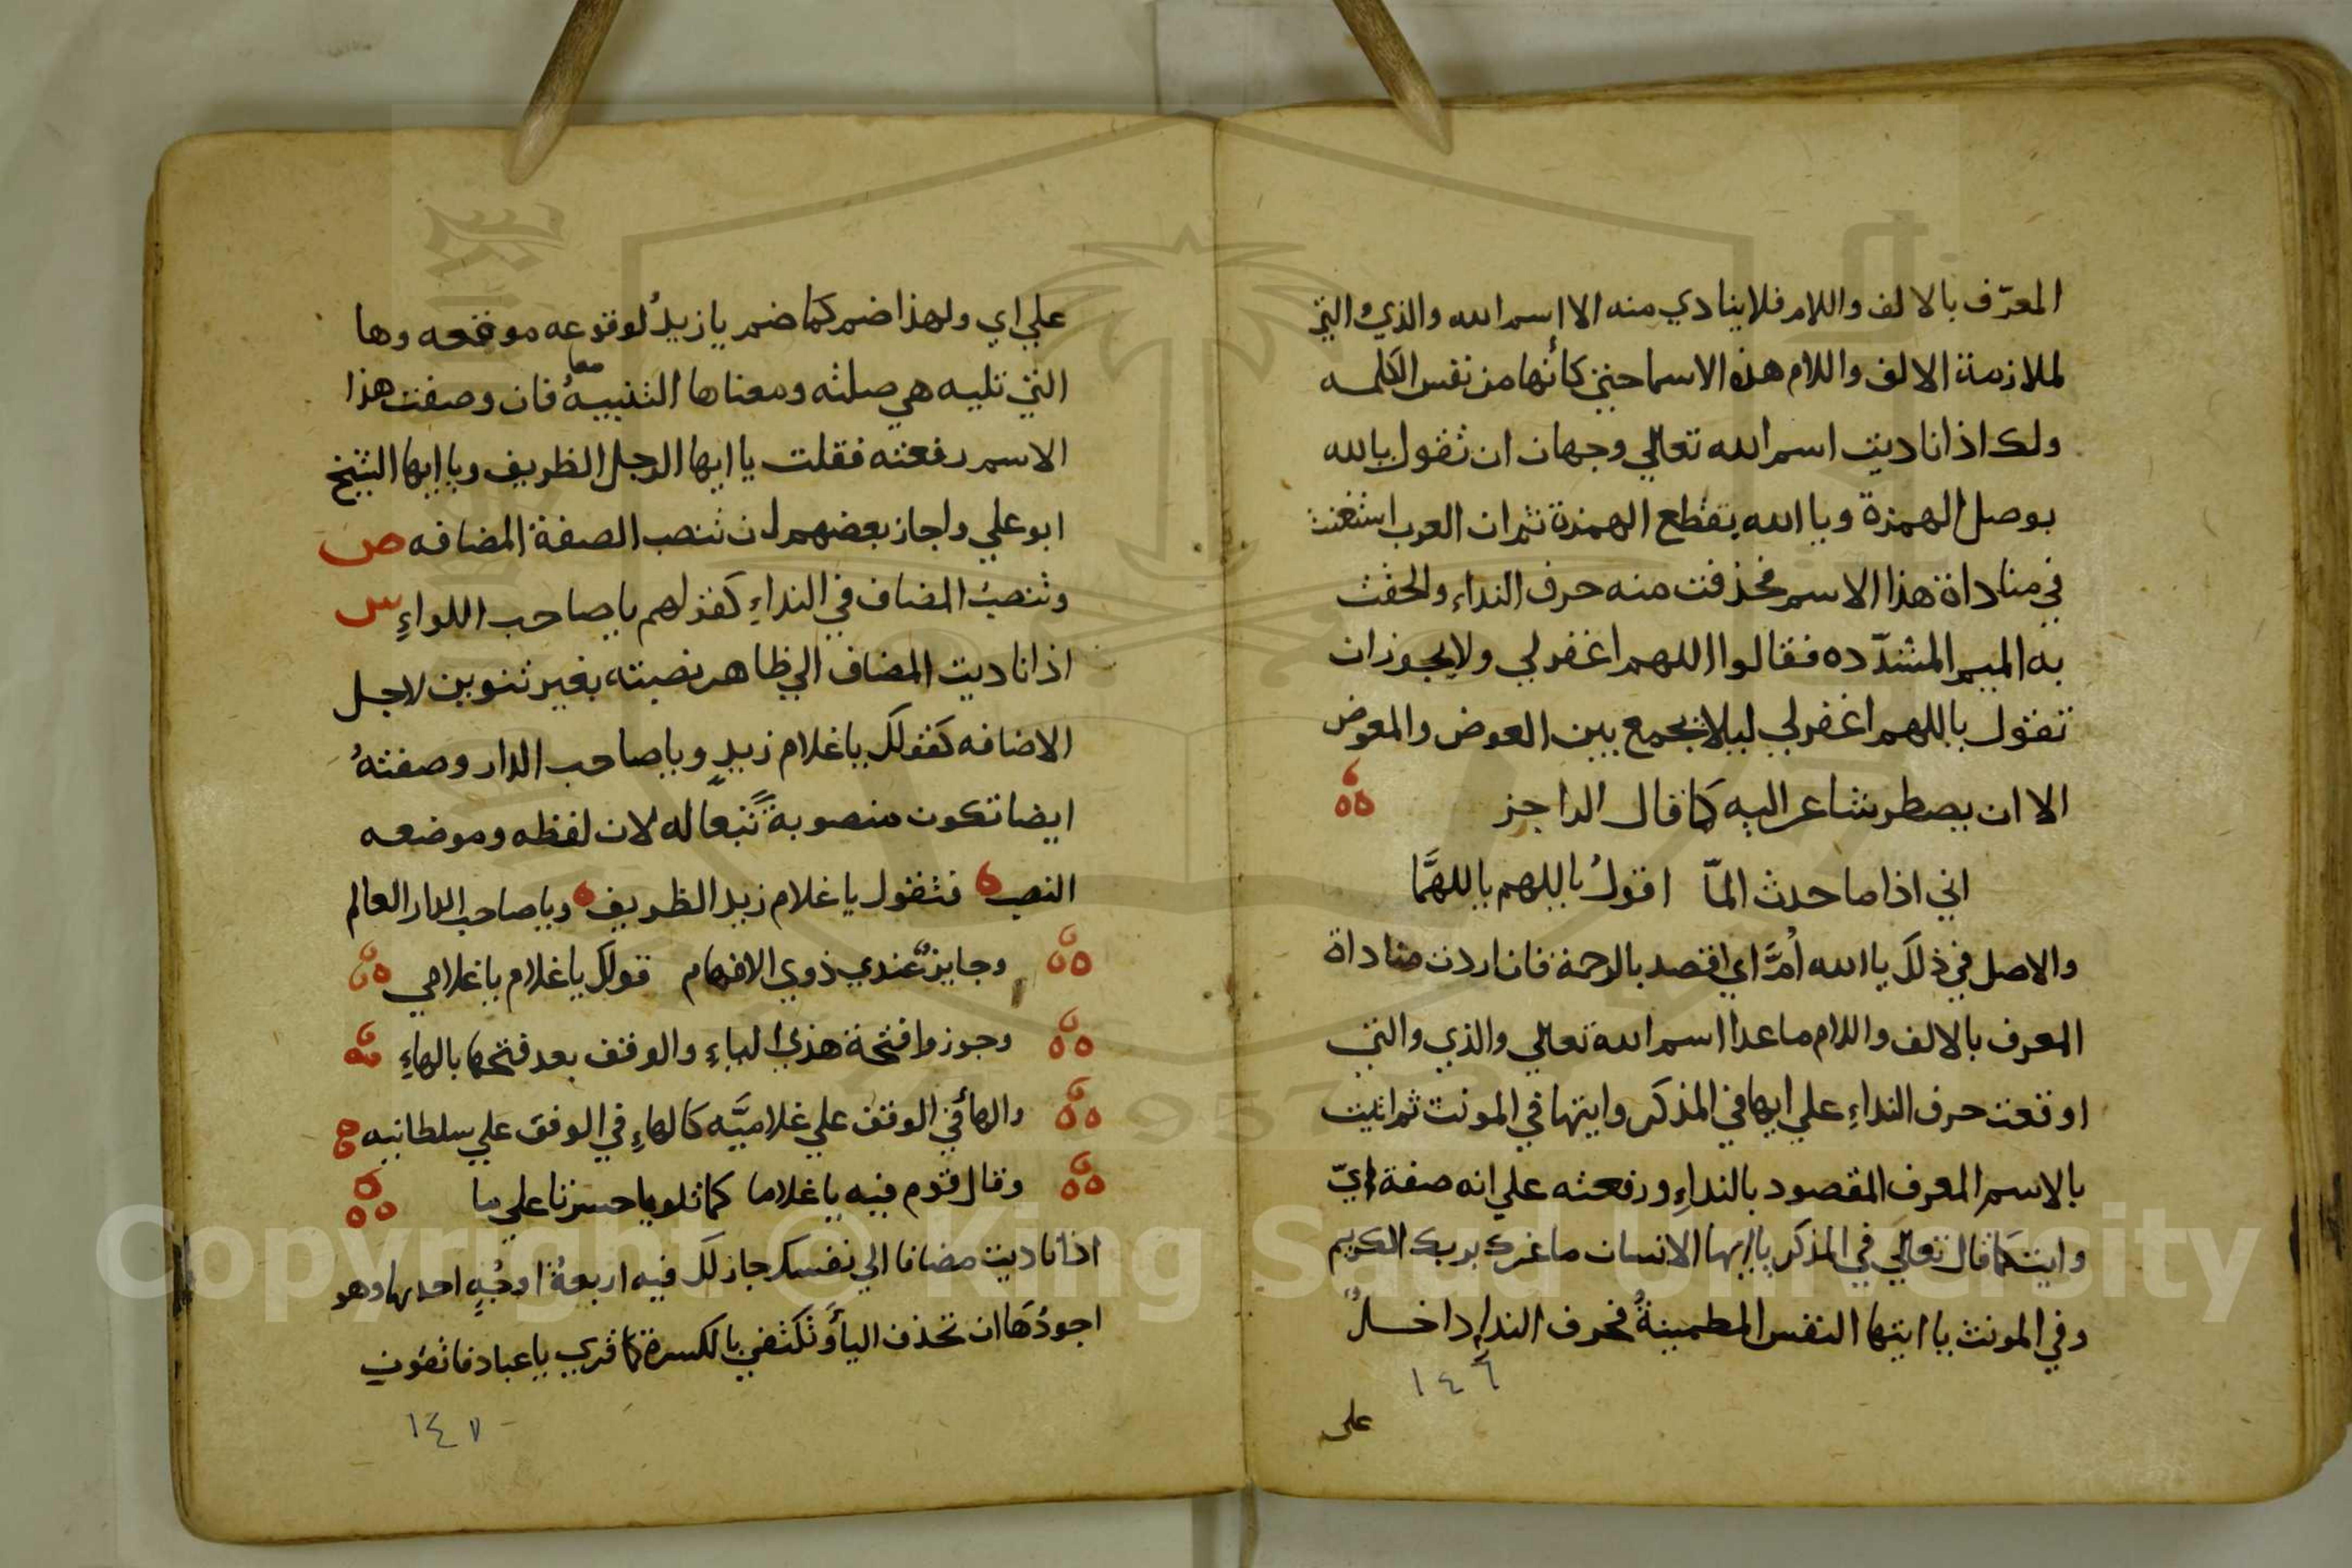 المعرّف بالالف واللام فلا ينادي منه الا اسم الله والذي والتي
لملازمة الالف واللام هذه الاسما حتى كأنها من نفس الكلمه
ولك اذا ناديت اسم الله تعالي وجهان ان تقول يالله
بوصل الهمزة ويا الله بقطع الهمزة ثم ان العرب استغنت
في مناداة هذا الاسم فحذفت منه حرف النداء والحقت
به الميم المشدّده فقالوا اللهم اغفر لي ولا يجوز ان
تقول ياللهم اغفر لي ليلا تجمع بين العوض والمعوض
الا ان يضطر شاعر اليه كما قال الراجز
اني اذا ما حدث المّا اقولُ ياللهم ياللهمَّا
والاصل في ذلك يا الله اُمَّ اي اقصد بالرحمة فان اردت مناداة
المعرف بالالف واللام ما عدا اسم الله تعالي والذي والتي
اوقعت حرف النداءِ علي ايها في المذكر وايتها في المونث ثم اتيت
بالاسم المعرف المقصود بالنداءِ ورفعته علي انه صفة ايّ
وايت كما قال تعالي في المذكر يا ايها الانسان ما غرك بربك الكريم
وفي المونث يا ايتها النفس المطمينةُ فحرف النداء داخلٌ
١٤٦
على
علي اي ولهذا ضم كما ضم يا زيدُ لوقوعه موقعه وها
التي تليه هي صلته ومعناها التنبيهُ فان وصفت هذا
الاسم رفعته فقلت يا ايها الرجل الظريف ويا ايها الشيخ
ابو علي واجاز بعضهم ان تنصب الصفة المضافه ص
وتنصبُ المضاف في النداءِ كقولهم يا صاحب اللواءِ س
اذا ناديت المضاف الي ظاهر نصبته بغير تنوين لاجل
الاضافه كقولك يا غلام زيدٍ ويا صاحب الدار وصفتهُ
ايضا تكون منصوبةً تبعًا له لان لفظه وموضعه
النصب فتقول يا غلام زيد الظريف ويا صاحب الدار العالم
وجايزٌ عندي ذوي الافهام قولك يا غلام يا غلامي
وجوزوا فتحة هذي الياءِ والوقف بعد فتحها بالهاءِ
والهأ في الوقف علي غلاميَّه كالهاءِ في الوقف علي سلطانيه
وقال قوم فيه يا غلاما كما تلوا يا حسرتا علي ما
اذا ناديت مضافا الي نفسك جاز لك فيه اربعةُ اوجُهٍ احدها وهو
اجودُهَا ان تحذف اليأ وَتكتفي بالكسرة كما قري يا عباد فاتقون
١٤٧